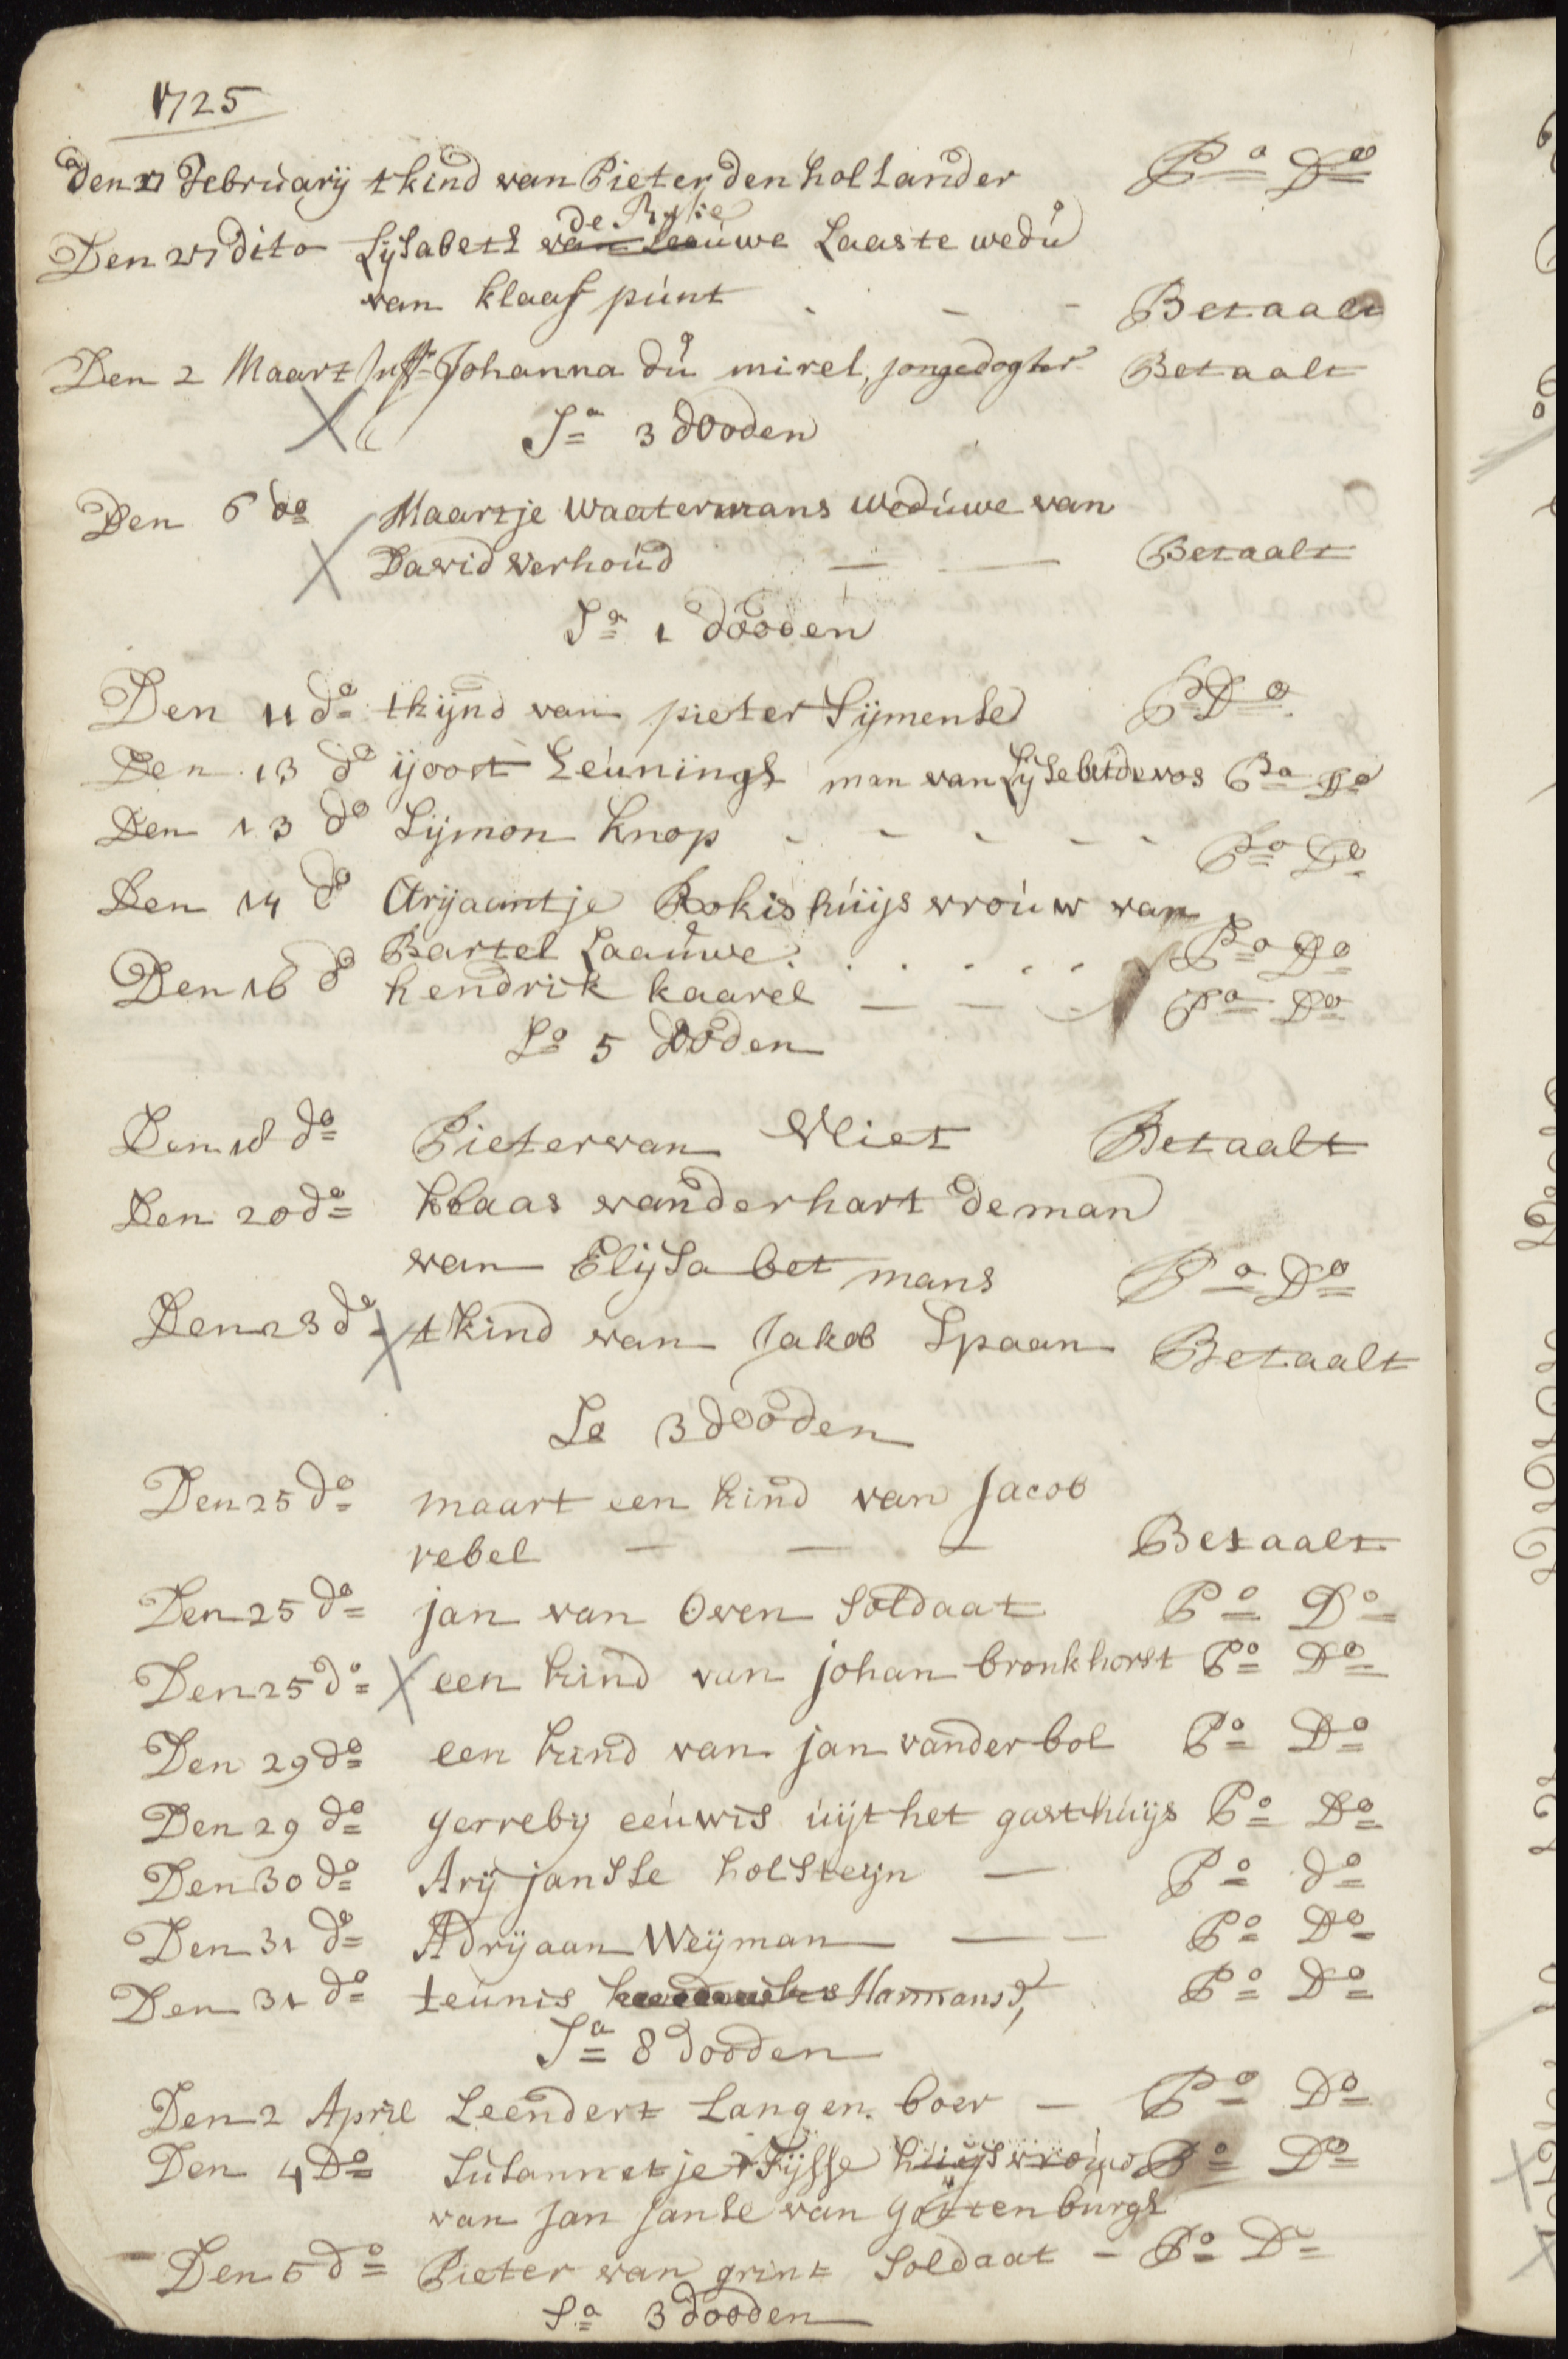 1725
Den 27 February t kind van Pieter den hollander Po Do
de Rysie
Den 27 dito Lysabets van Leeuwe Laaste wedu
van klaas punt - - - Betaalt
Den 2 Maart Juffr Johanna du mirel, jongedogter Betaalt
Sa 3 dooden
Den 6 do Maartje Waatermans Weduwe van
David Verhoud — — Betaalt
Sa 1 dooden
Den 11 do tkijnd van pieter Sijmense Po Do
Den 13 do ijoost Leunings man van Lysebet de vos Po Do
Den 13 do Sijmon Knop - - - - - Po Do
Den 14 do Arijaantje Rokis huijs vrouw van
Bartel Laauwe . . . . . Po Do
Den 16 do hendrik kaarel — — — Po Do
So 5 dooden
Den 18 do Pieter van Vliet Betaalt
Den 20 do klaas vanderhart de man
van Elysabet mans Po Do
Den 23 do t kind van Jakob Spaan Betaalt
Sa 3 dooden
Den 25 do maart een kind van Jacob
rebel — — — Betaalt
Den 25 do jan van Oven Soldaat Po Do
Den 25 do een kind van johan bronkhorst Po Do
Den 29 do een kind van jan vanderbol Po Do
Den 29 do gerreby eeuwis uijt het gasthuijs Po Do
Den 30 do Arij jansse holsteyn — Po do
Den 31 do Adrijaan Weijman — — Po Do
Den 31 do teunis Harmansd, Po Do
Sa 8 dooden
Den 2 April Leendert Langen boer — Po Do
Den 4 Do Susannetje Tijsse huijsvrouw Po Do
van Jan Janse van Gottenburgs
Den 5 do Pieter van grint Soldaat - Po Do
Sa 3 dooden